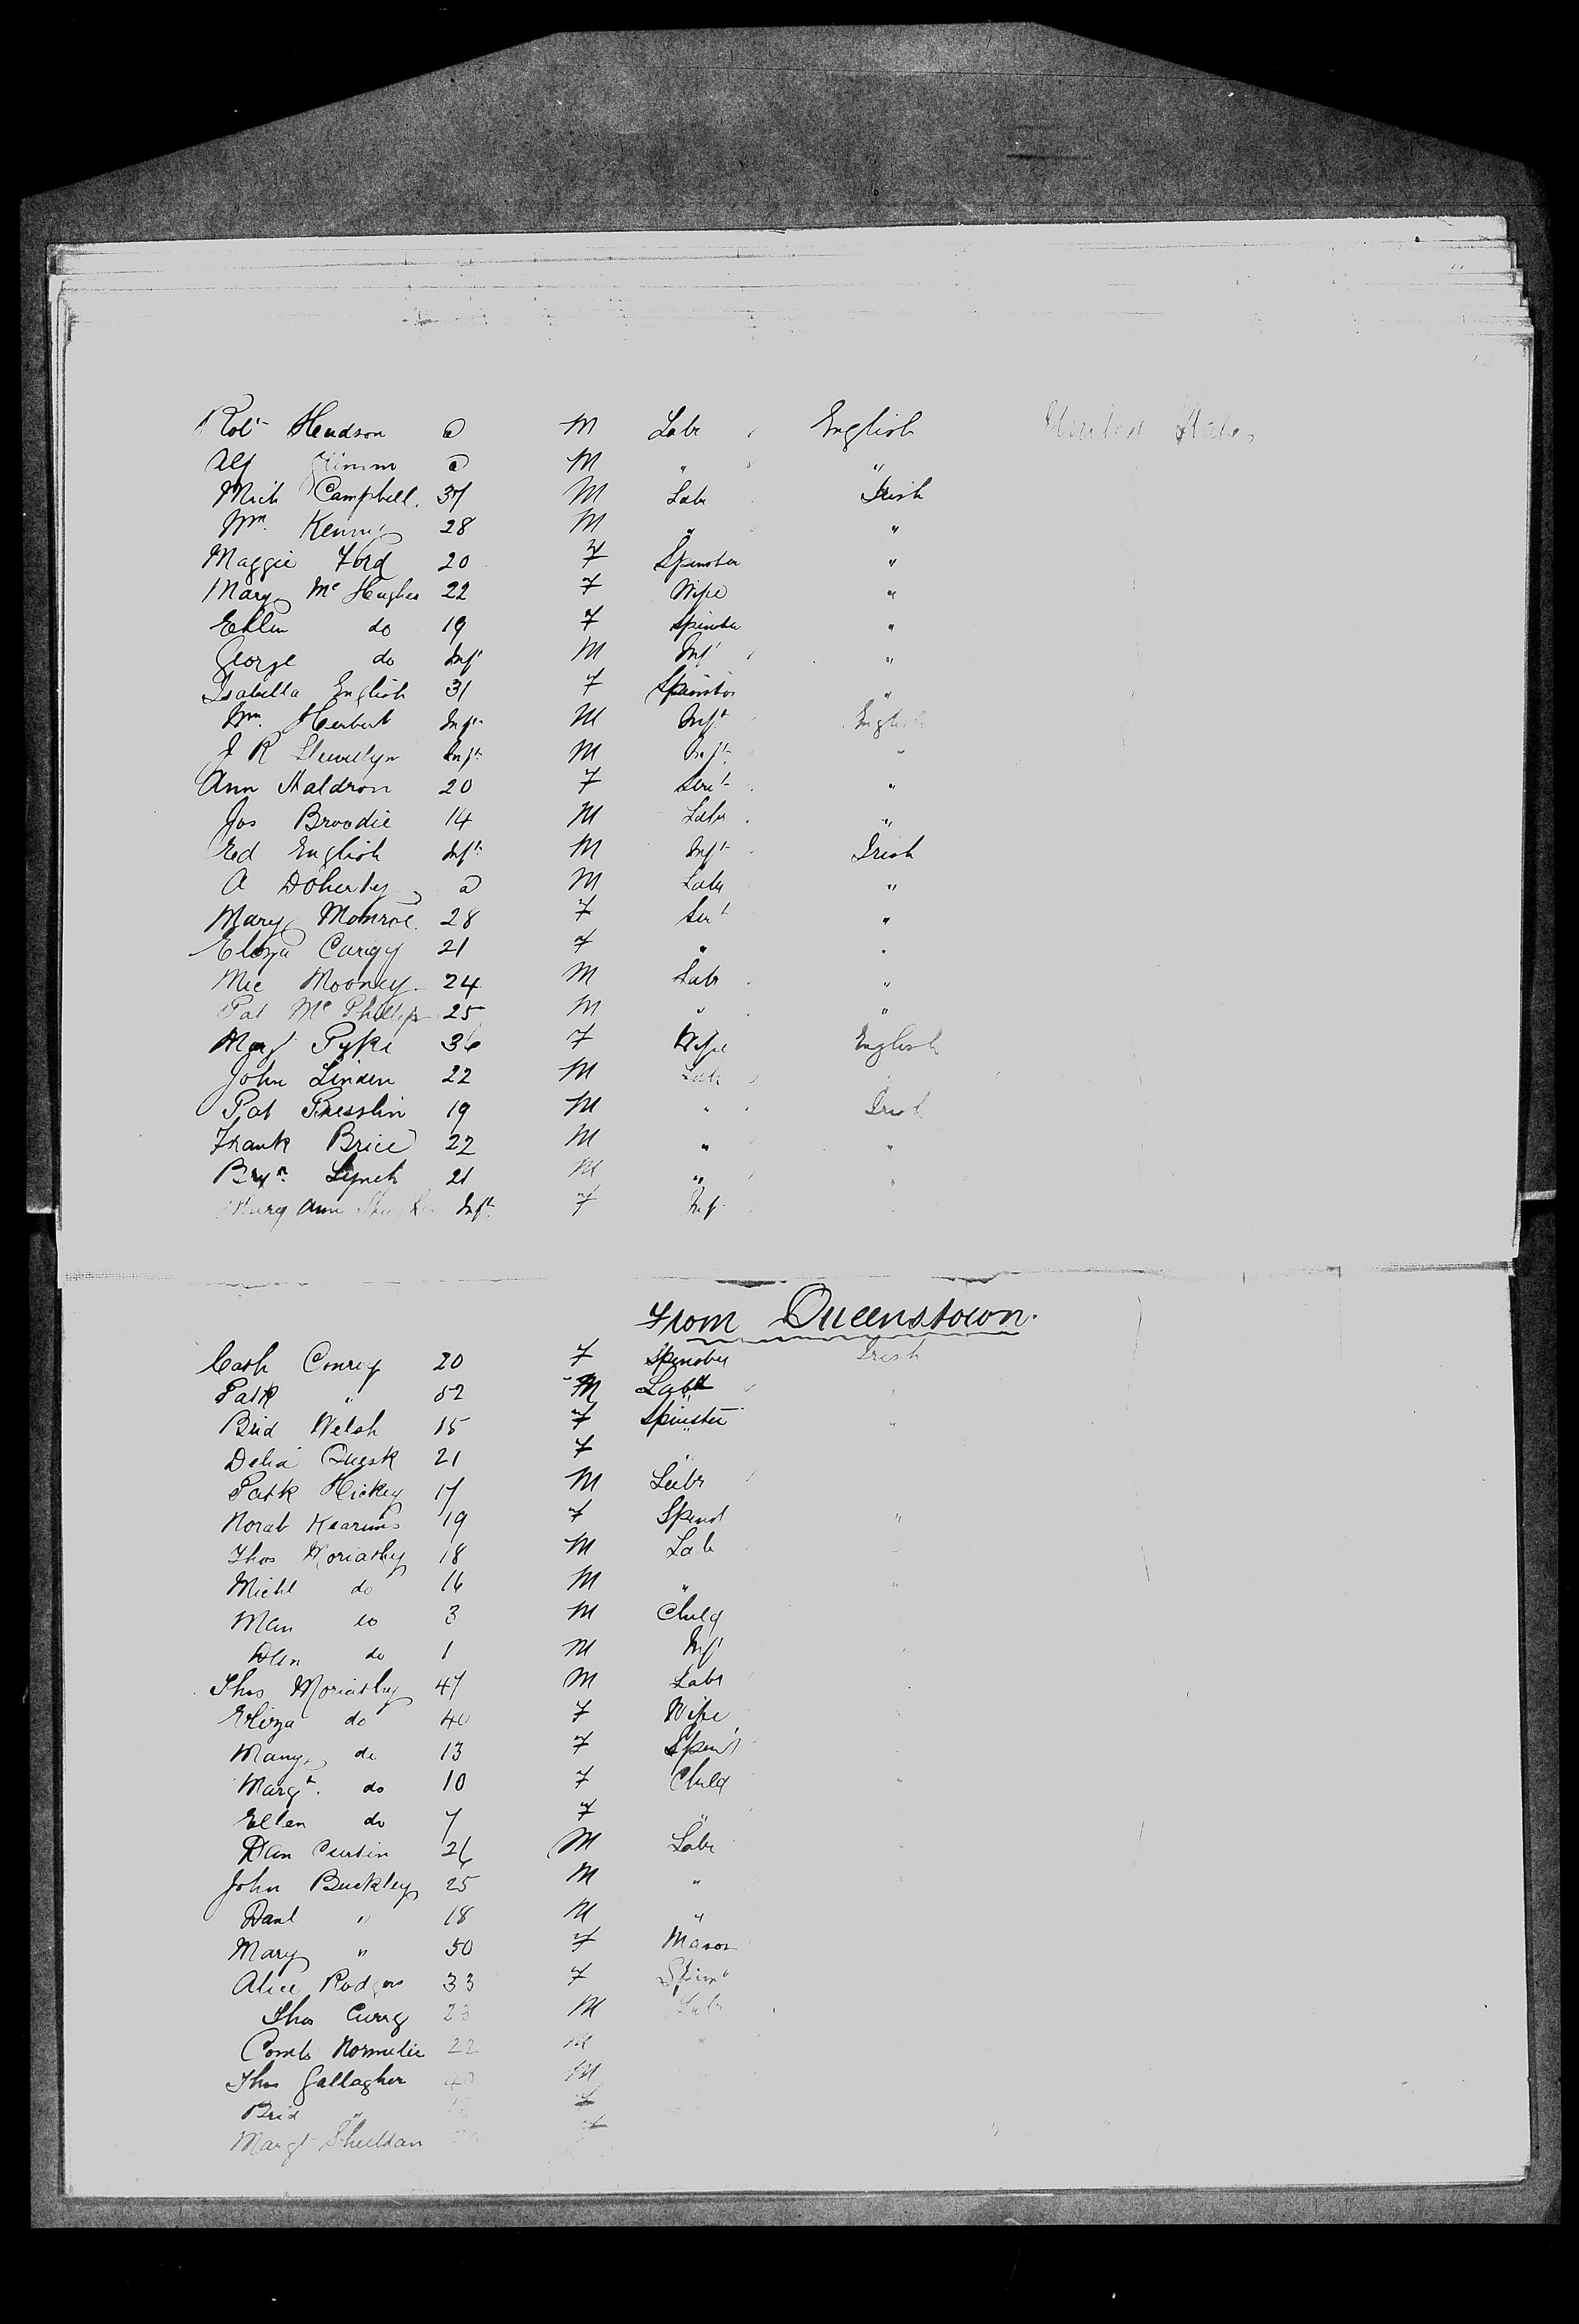 Robt Hendson a M Labr English United States
Alf a M " "
Mich Campbell 37 M Labr Irish
Wm. Kenny 28 M " "
Maggie Ford 20 F Spinster "
Mary McHughes 22 F Wife "
Ellen do 19 F Spinster "
George do Inft M Inft "
Isabella English 31 F Spinster "
Wm. Herbert Inft M Inft English
J R Llewellyn Inft M Inft "
Ann Haldron 20 F Servt "
Jos Broodie 14 M Labr "
Ed English Inft M Inft Irish
A Doherty a M Labr "
Mary Monroe 28 F Sert "
Eliza 21 F " "
Mic Mooney 24 M Labr "
Pat McPhillips 25 M " "
Margt Pyke 36 F Wife English
John Linden 22 M Labr
Pat Bresslin 19 M " Irish
Frank Brice 22 M " "
Bryn Lynch 21 M " "
Mary Ann Inft F Inft
From Queenstown.
Cath Conroy 20 F Spinster Irish
Patk " 52 M Labr
Brid Welsh 15 F Spinster "
Delia Quesk 21 F "
Patk Hickey 17 M Labr
Norah Kearins 19 F Spinst "
Thos Moriathy 18 M Lab
Michl do 16 M " "
Man do 3 M Child
Dan do 1 M Inft
Thos Moriathy 47 M Labr
Eliza do 40 F Wife
Mary do 13 F Spinst
Margt. do 10 F Child
Ellen do 7 F "
Dan Curtin 26 M Labr
John Buckley 25 M "
Danl " 18 M "
Mary " 50 F Mason
Alice Rodgers 33 F Spinst
Thos Curry 23 M Labr
Normelie 22 M "
Thos Gallagher 40 M
Brid " F
Margt Sheeldan F